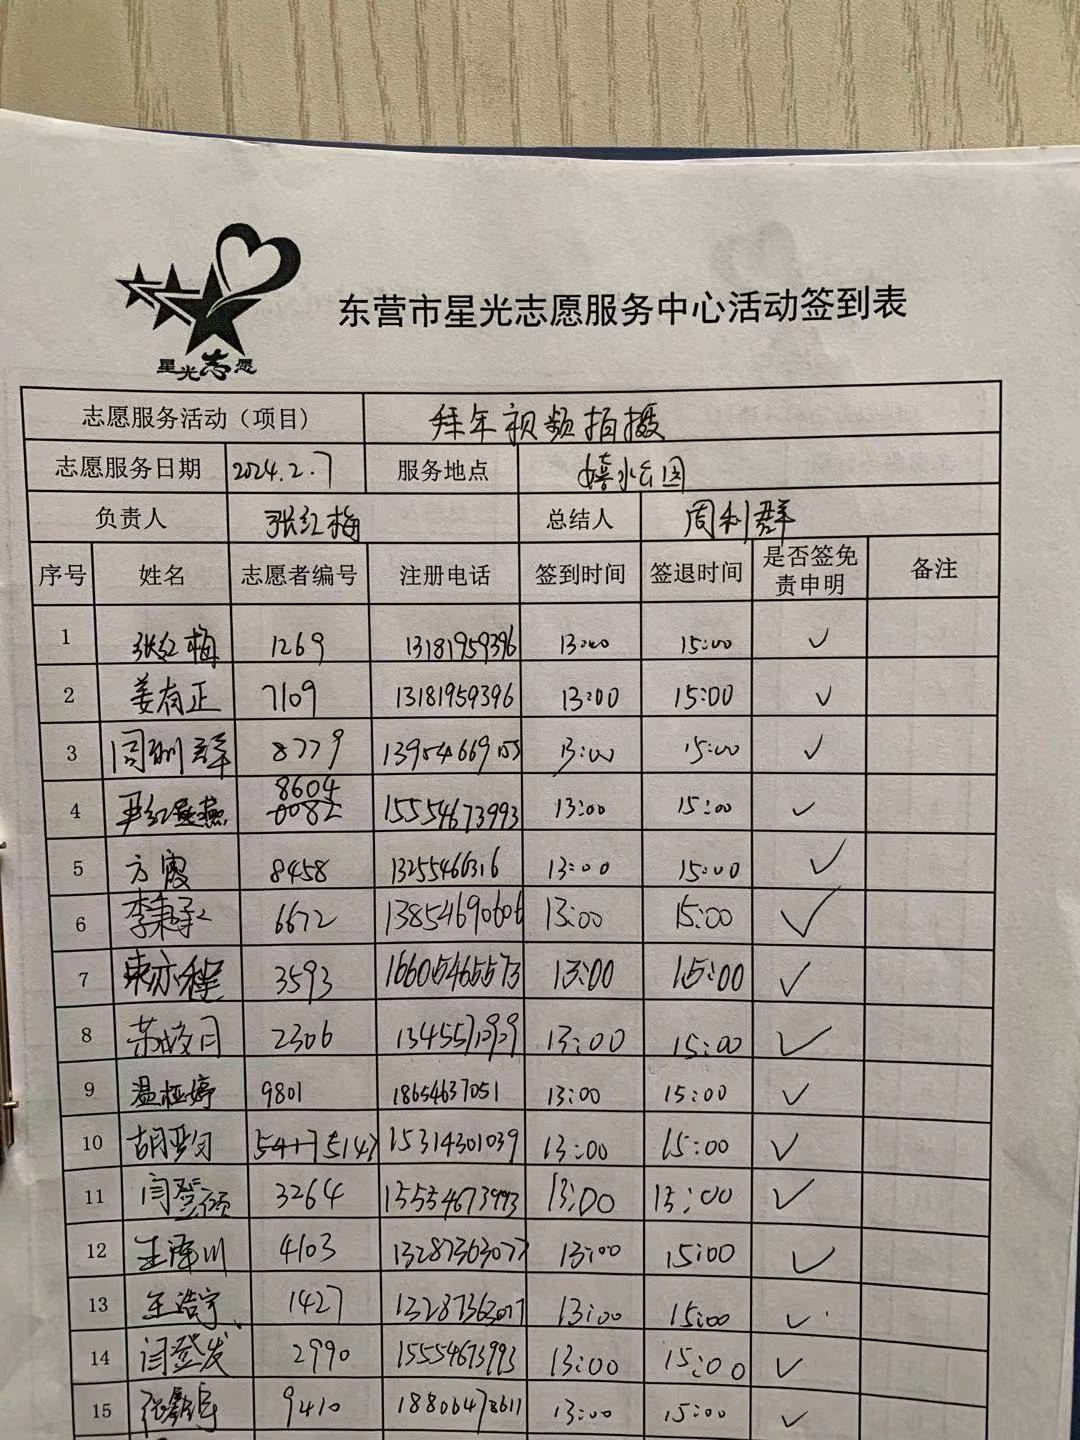 星光志愿
东营市星光志愿服务中心活动签到表
志愿服务活动（项目） 拜年视频拍摄
志愿服务日期 2024.2.7 服务地点 嬉水公园
负责人 张红梅 总结人 周利群
序号 姓名 志愿者编号 注册电话 签到时间 签退时间 是否签免责申明 备注
1 张红梅 1269 13181959396 13:00 15:00 ✓
2 姜有正 7109 13181959396 13:00 15:00 ✓
3 周利群 8779 13954669155 13:00 15:00 ✓
4 尹红燕 8604 15554673993 13:00 15:00 ✓
5 方霞 8458 13255466316 13:00 15:00 ✓
6 6672 13854690606 13:00 15:00 ✓
7 3593 16605465573 13:00 15:00 ✓
8 2306 13:00 15:00 ✓
9 温桠婷 9801 18654637051 13:00 15:00 ✓
10 5147 15314301039 13:00 15:00 ✓
11 闫登硕 3264 15554673993 13:00 13:00 ✓
12 王泽川 4103 13287363077 13:00 15:00 ✓
13 王浩宇 1427 13287363077 13:00 15:00 ✓
14 闫登发 2990 15554673993 13:00 15:00 ✓
15 9410 13:00 15:00 ✓